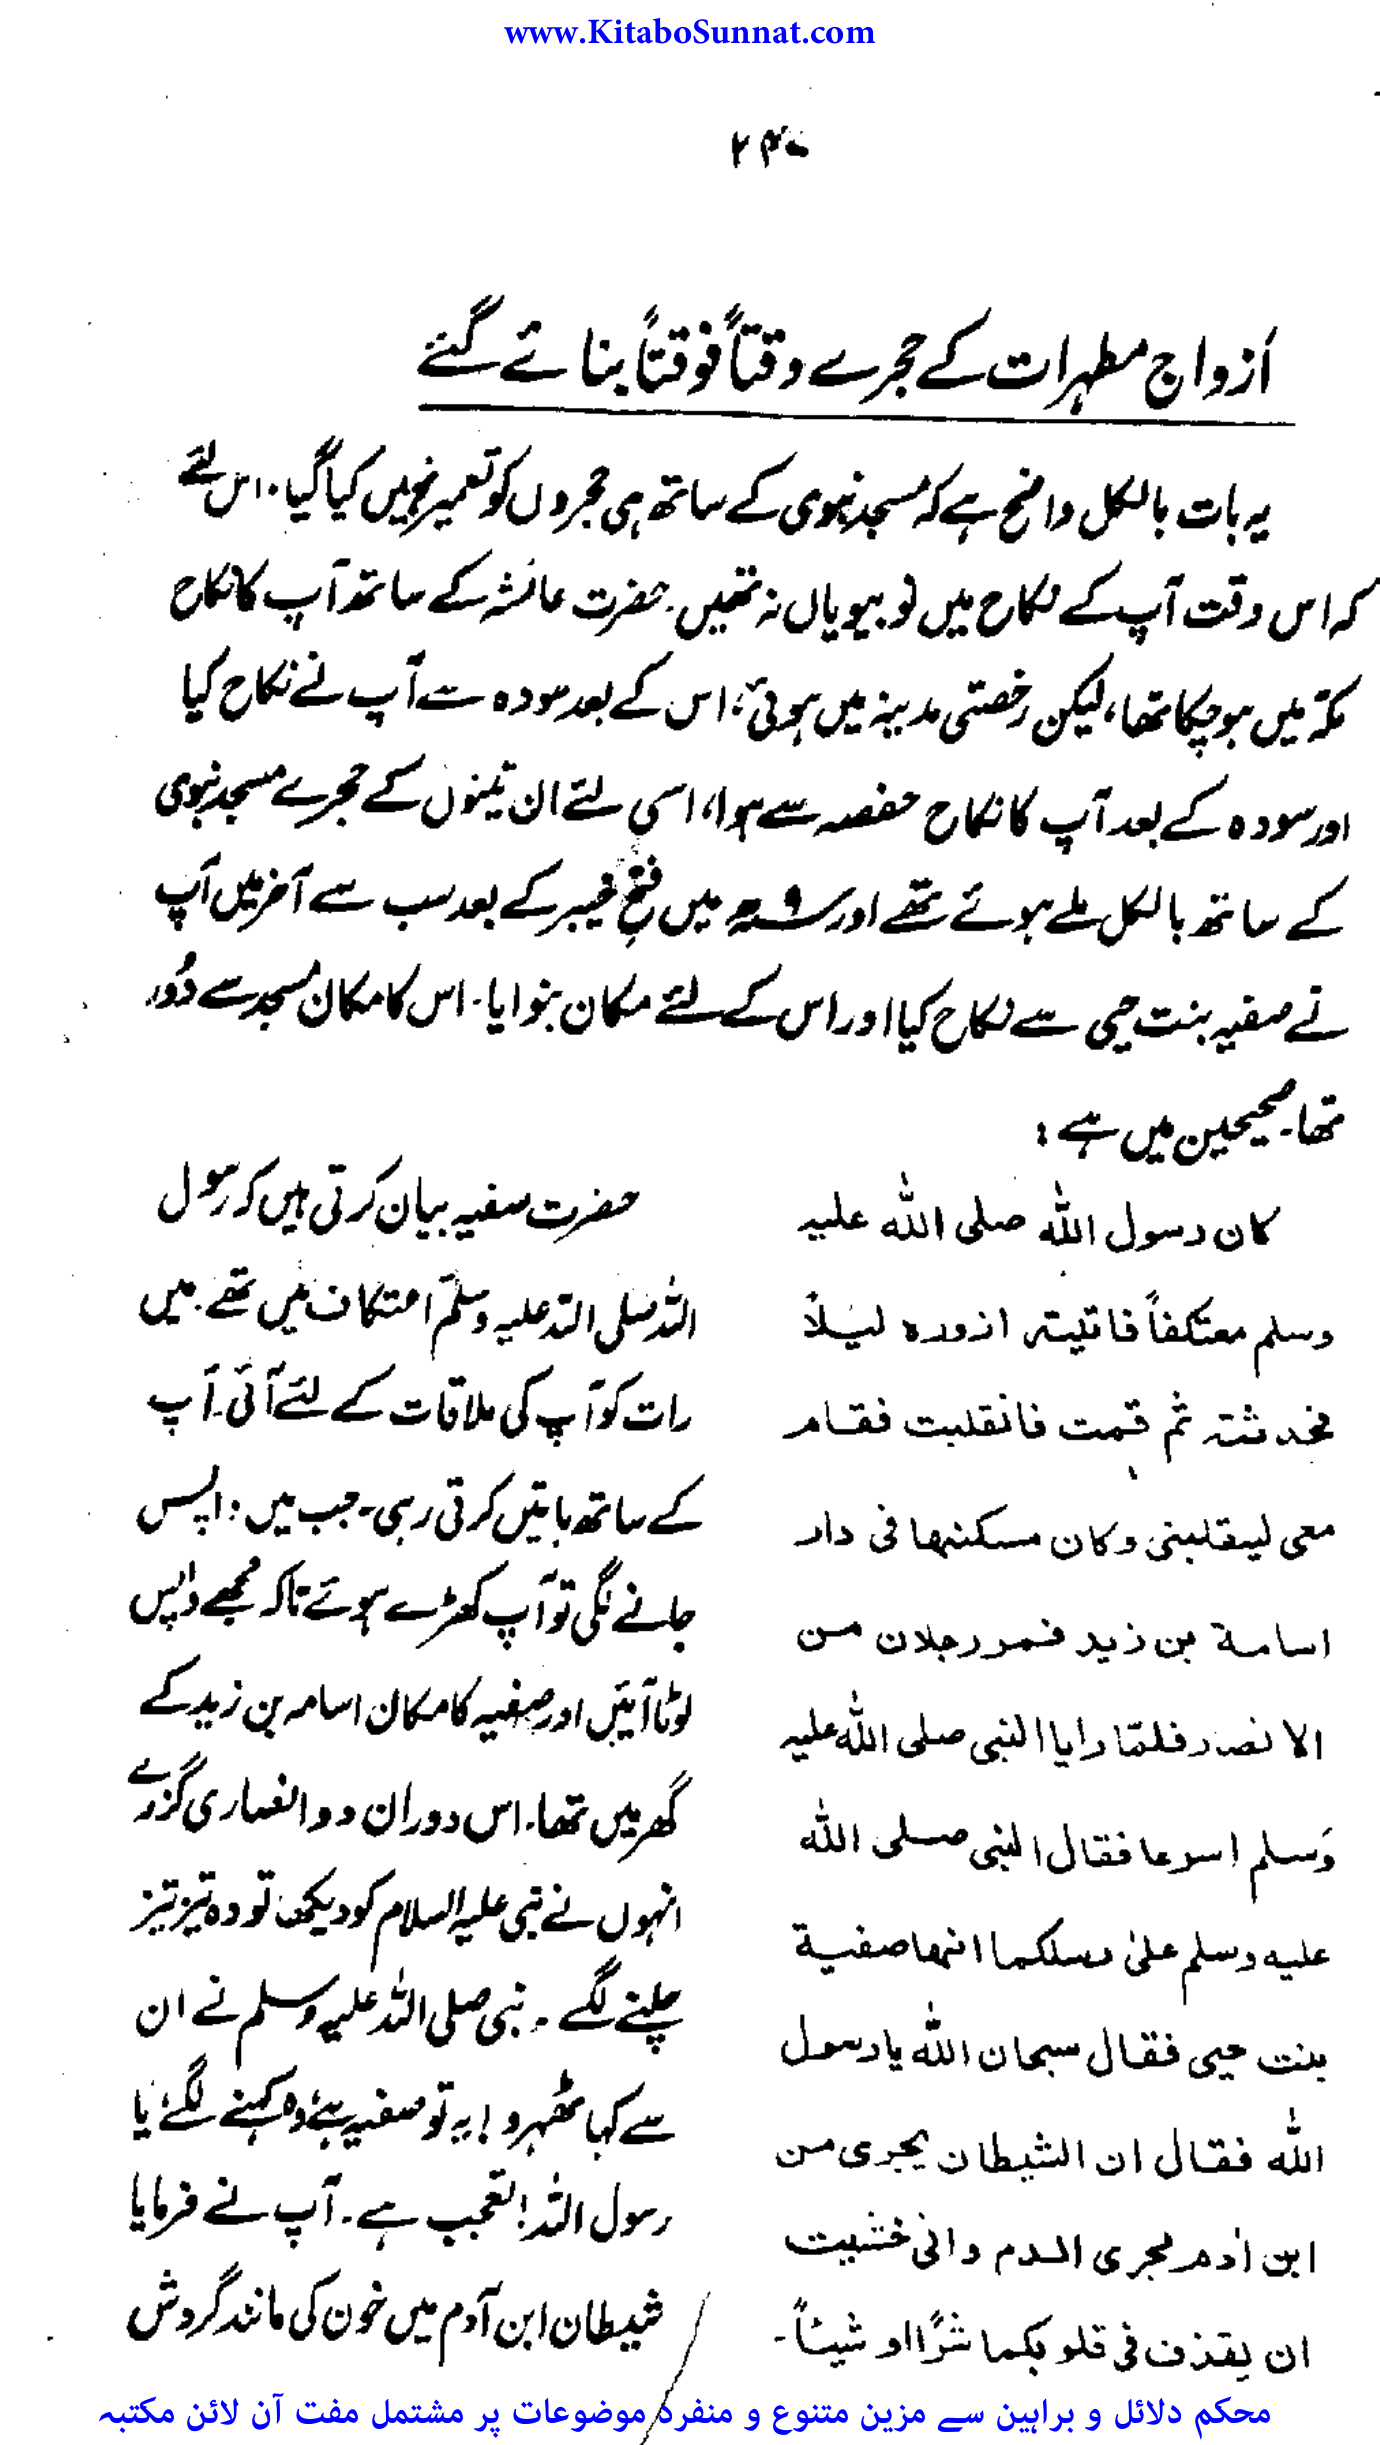 www.KitaboSunnat.com
اَزواج مطہرات کے حجرے وقتاً فوقتاً بنائے گئے
یہ بات بالکل واضح ہے کہ مسجد نبوی کے ساتھ ہی حجروں کو تعمیر نہیں کیا گیا۔ اس لئے
کہ اس وقت آپ کے نکاح میں نو بیویاں نہ تھیں۔ حضرت عائشہ کے ساتھ آپ کا نکاح
مکہ میں ہو چکا تھا، لیکن رخصتی مدینہ میں ہوئی، اس کے بعد سودہ سے آپ نے نکاح کیا
اور سودہ کے بعد آپ کا نکاح حفصہ سے ہوا، اسی لئے ان تینوں کے حجرے مسجد نبوی
کے ساتھ بالکل ملے ہوئے تھے اور میں فتح خیبر کے بعد سب سے آخر میں آپ
نے صفیہ بنت حیی سے نکاح کیا اور اس کے لئے مکان بنوایا۔ اس کا مکان مسجد سے دُور
تھا۔ صحیحین میں ہے :
کان رسول اللہ صلی اللہ علیہ
وسلم معتکفاً فاتیتہ ازورہ لیلاً
فحدثتہ ثم قمت فانقلبت فقام
معی لیقلبنی وکان مسکنہا فی دار
اسامة بن زید فمر رجلان من
الانصار فلمّا رایا النبی صلی اللہ علیہ
وَسلم اسرعا فقال النبی صلی اللہ
علیہ وسلم علیٰ رسلکما انھا صفیة
بنت حیی فقال سبحان اللہ یا رسول
اللہ فقال ان الشیطان یجری من
ابن اٰدم مجری الدم وانی خشیت
ان یقذف فی قلوبکما شرًّا او شیئاً۔
حضرت صفیہ بیان کرتی ہیں کہ رسول
اللہ صلی اللہ علیہ وسلم اعتکاف میں تھے۔ میں
رات کو آپ کی ملاقات کے لئے آئی۔ آپ
کے ساتھ باتیں کرتی رہی۔ جب میں واپس
جانے لگی تو آپ کھڑے ہوئے تاکہ مجھے واپس
لوٹا آئیں اور صفیہ کا مکان اسامہ بن زید کے
گھر میں تھا۔ اس دوران دو انصاری گزرے
انہوں نے نبی علیہ السلام کو دیکھا تو وہ تیز تیز
چلنے لگے۔ نبی صلی اللہ علیہ وسلم نے ان
سے کہا ٹھہرو! یہ تو صفیہ ہے، وہ کہنے لگے، یا
رسول اللہ! تعجب ہے۔ آپ نے فرمایا
شیطان ابن آدم میں خون کی مانند گردش
محکم دلائل و براہین سے مزین متنوع و منفرد موضوعات پر مشتمل مفت آن لائن مکتبہ